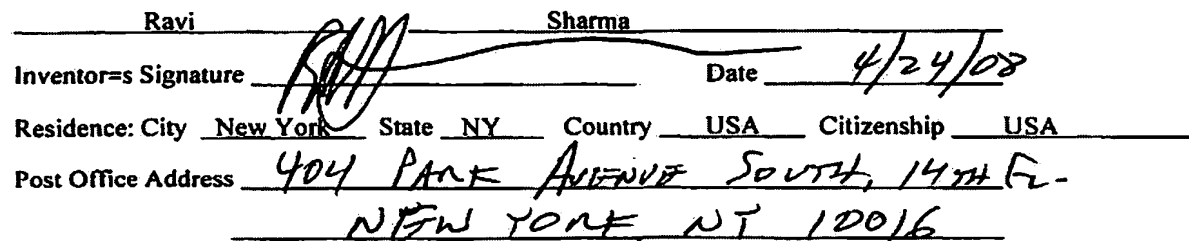 Ravi Sharma
Inventor=s Signature Date 4/24/08
Residence: City New York State NY Country USA Citizenship USA
Post Office Address 404 PARK AVENUE SOUTH, 14TH FL.
NEW YORK NY 10016